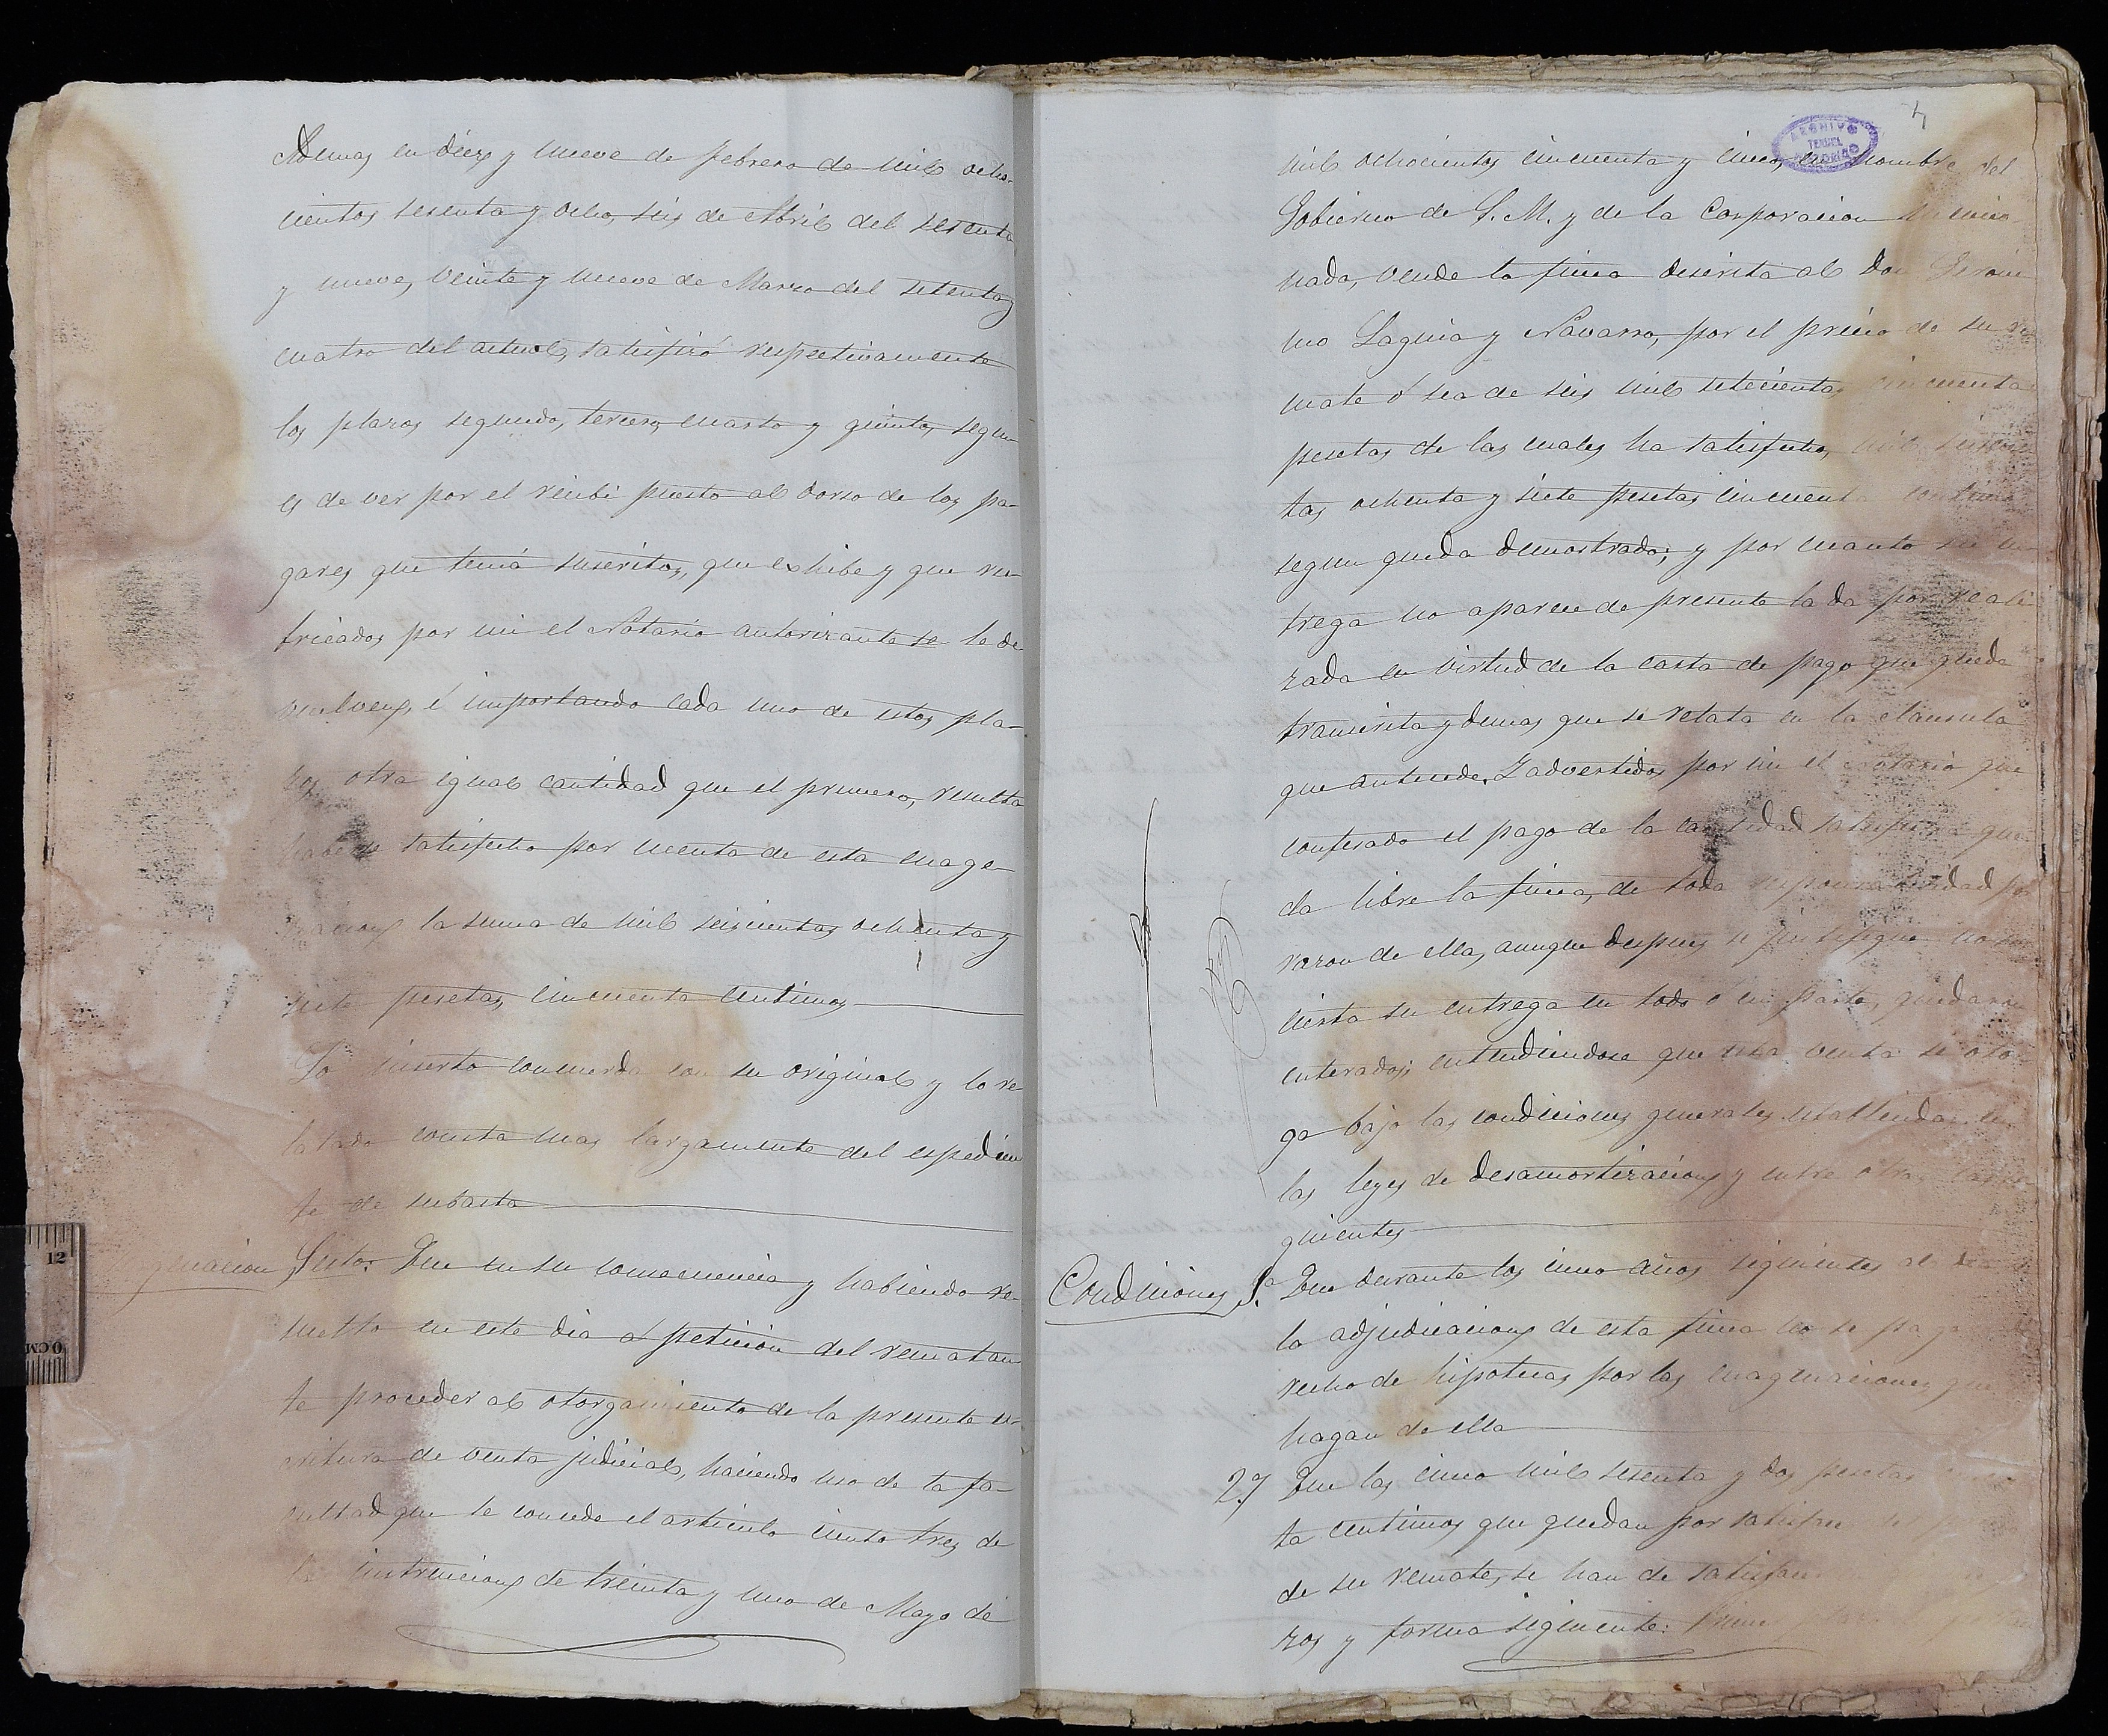 Ademas en diez y nueve de febrero de mil ocho-
cientos sesenta y ocho, seis de Abril del sesenta
y nueve, veinte y nueve de Marzo del setenta y
cuatro del actual, satisfizo respectivamente
los plazos segundo, tercero, cuarto y quinto, segun
es de ver por el recibi puesto al dorso de los pa-
gares que tenia suscritos, que exhibe y que ru-
bricados por mi el Notario autorizante se le de
vuelven, é importando cada uno de estos pla-
zos otra igual cantidad que el primero, resulta
haberse satisfecho por cuenta de esta enage-
nacion la suma de mil seiscientas ochenta y
siete pesetas, cincuenta centimos
Lo inserto concuerda con su original y lo re
latado consta mas largamente del espedien
te de subasta
genacion Sesto: Que en su consecuencia y habiendo re-
suelto en este dia á peticion del rematan
te proceder al otorgamiento de la presente es-
critura de venta judicial, haciendo uso de la fa-
cultad que le concede el articulo ciento tres de
la instruccion de treinta y uno de Mayo de
4
ARCHIVO
TERUEL
mil ochocientos cincuenta y cinco, en nombre del
Gobierno de S. M. y de la Corporacion mencio-
nada, vende la finca descrita al Don Geroni
mo Laguia y Navarro, por el precio de su re
mate ó sea de seis mil setecientas cincuenta
pesetas de las cuales ha satisfecho, mil seiscien
tas ochenta y siete pesetas, cincuenta centimos
segun queda demostrado; y por cuanto su en
trega no aparece de presente la da por reali
zada en virtud de la carta de pago que queda
transcrita y demas que se relata en la clausula
que antecede. Y advertidos por mi el Notario que
confesado el pago de la cantidad satisfecha que
da libre la finca, de toda responsabilidad por
razon de ella, aunque despues se justifique no ser
cierta su entrega en todo ó en parte, quedaron
enterados; entendiendose que esta venta se otor
ga bajo las condiciones generales establecidas en
las leyes de desamortizacion y entre otras las si
guientes
Condiciones 1.ª Que durante los cinco años siguientes al de
la adjudicacion de esta finca no se paga
recho de hipotecas por las enagenaciones que
hagan de ella
2.ª Que las cinco mil sesenta y dos pesetas
ta centimos que quedan por satisfacer
de su remate, se han de satisfacer
zos y forma siguiente: